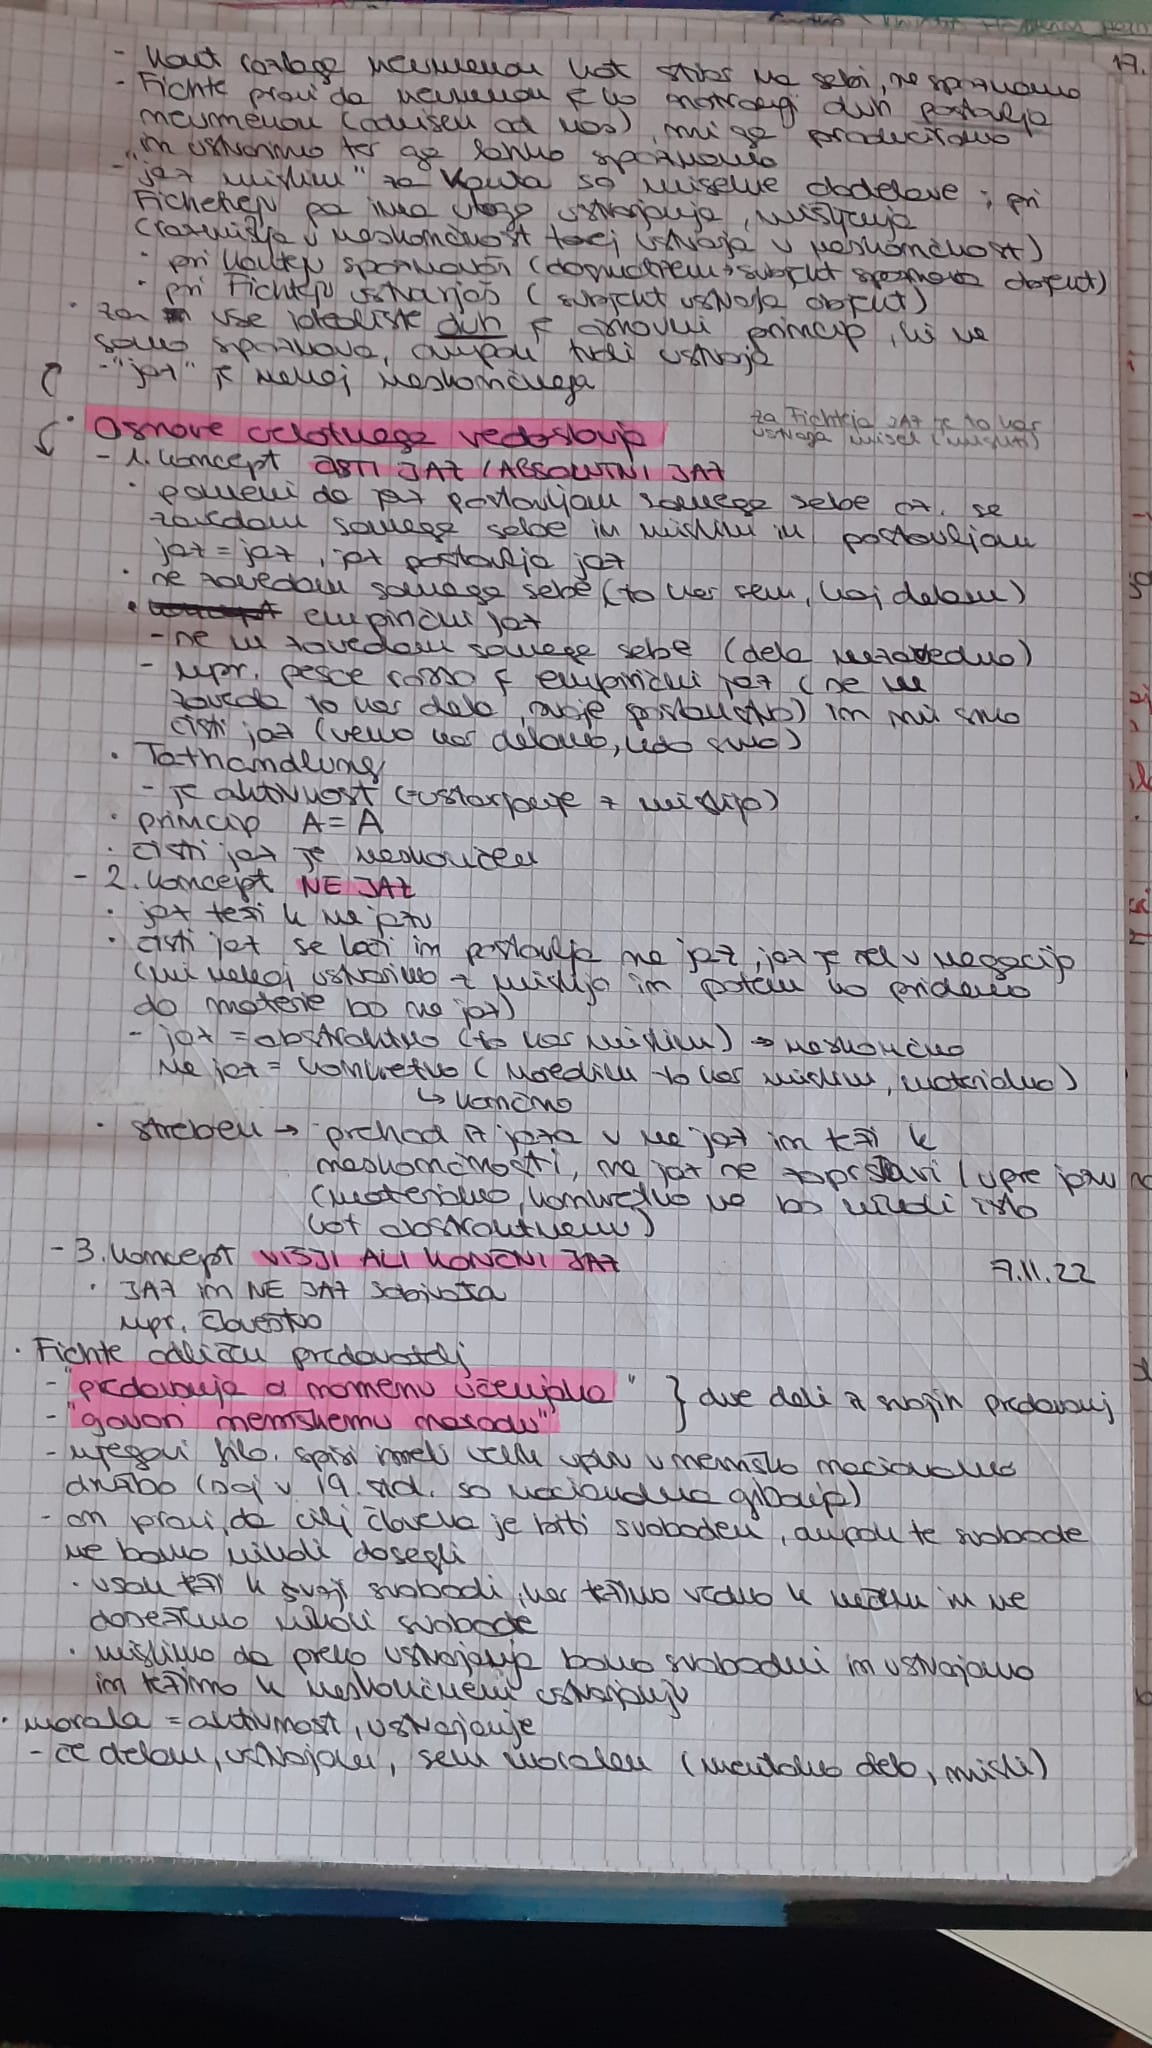 17.
- Kant razlaga neumenon kot stvar na sebi, ne spoznamo
- Fichte pravi da neumenon je ko notranji duh postavlja
neumenon (odvisen od nas), mi ga produciramo
in ustvarimo ter ga lahko spoznamo
- "jaz mislim" za Kanta so miselne dodelave ; pri
Fichteju pa ima vlogo ustvarjanja, mišljenja
(razmišlja v neskončnost torej ustvarja v neskončnost)
· pri Kantu spoznavaš (dogmatizem → subjekt spoznava objekt)
· pri Fichteju ustvarjaš (subjekt ustvarja objekt)
· za vse idealiste duh je osnovni princip, ki ne
samo spoznava, ampak tudi ustvarja
- "jaz" je nekaj neskončnega
· Osnove celotnega vedoslovja
za Fichteja JAZ je to kar
ustvarja misel (misliti)
- 1. koncept ČISTI JAZ / ABSOLUTNI JAZ
· pomeni da jaz postavljam samega sebe oz. se
zavedam samega sebe in mislim in postavljam
jaz = jaz, jaz postavlja jaz
· ne zavedam samega sebe (to kar sem, kaj delam)
· empirični jaz
- ne zavedam samega sebe (dela nezavedno)
- npr. pesce rosso je empirični jaz (ne
zaveda to kar dela, svoje postavstvo) in mi smo
čisti jaz (vemo kar delamo, kdo smo)
· Tathandlung
- je aktivnost (=ustvarjanje z mislijo)
· princip A = A
· čisti jaz je neskončen
- 2. koncept NE JAZ
· jaz teži k ne jazu
· čisti jaz se loči in postavlja ne jaz, jaz je rel v negacijo
(mi nekaj ustvarimo z mislijo in potem ko pridemo
do materije bo ne jaz)
- jaz = abstraktno (to kar mislim) → neskončno
ne jaz = konkretno (naredim to kar mislim, materialno)
↳ končno
· streben → prehod iz jaza v ne jaz in teži k
neskončnosti, ne jaz ne zoprstavi / upre jazu
(materialno, konkretno ne bo nikoli isto
kot abstraktnemu)
- 3. koncept VIŠJI ALI KONČNI JAZ
7.11.22
· JAZ in NE JAZ sobivata
npr. človeštvo
· Fichte odličen predavatelj
- "predavanja o namenu učenjaka" } dve deli iz svojih predavanj
- "govori nemškemu narodu"
- njegovi filo. spisi imeli velik vpliv v nemško nacionalno
državo (saj v 19. stol. so nacionalna gibanja)
- on pravi, da cilj človeka je biti svoboden, ampak te svobode
ne bomo nikoli dosegli
· vsak teži k svoji svobodi, ker težimo vedno k nečemu in ne
dosežemo nikoli svobode
· mislimo da preko ustvarjanja bomo svobodni in ustvarjamo
in težimo k neskončnemu ustvarjanju
· morala = aktivnost, ustvarjanje
- če delam, ustvarjam, sem moralen (mentalno delo, misli)